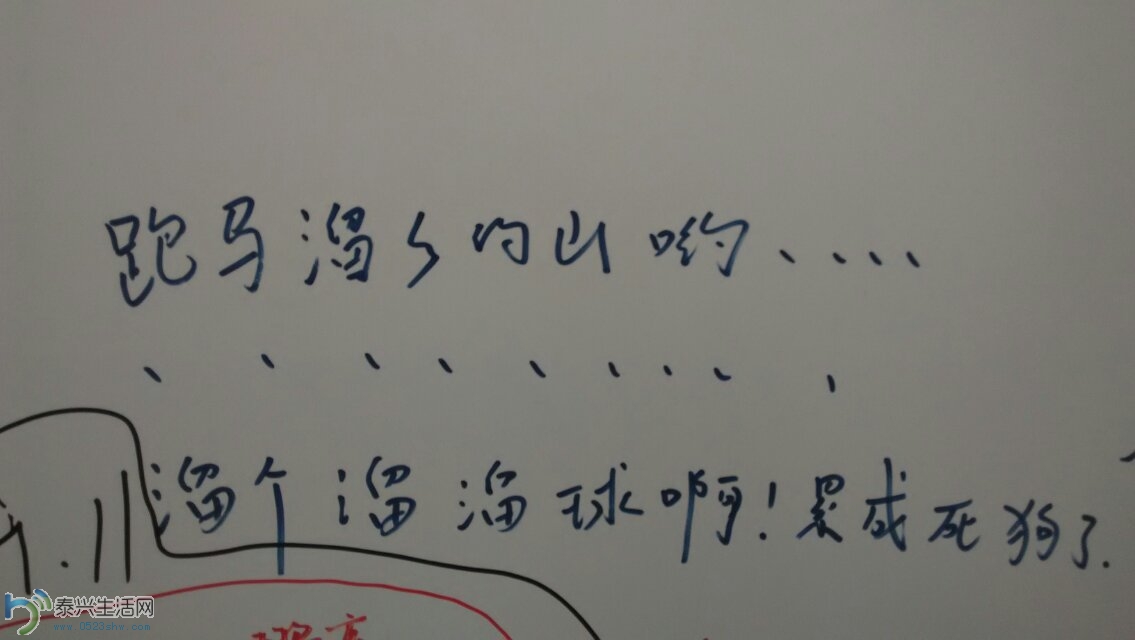 跑马溜々的山哟、、、、
、、、、、、、、、
溜个溜溜球啊！累成死狗了.
.11
泰兴生活网
www.0523shw.com